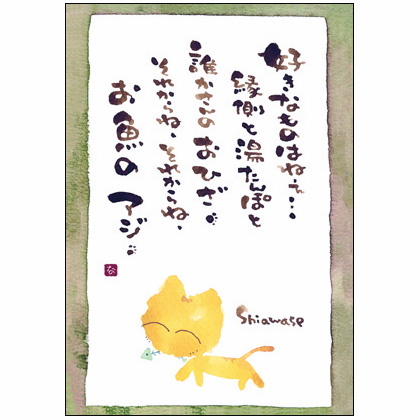 好きなものはね・・・
縁側と湯たんぽと
誰かさんのおひざ。
それからね、それからね、
お魚のアジ。
Shiawase